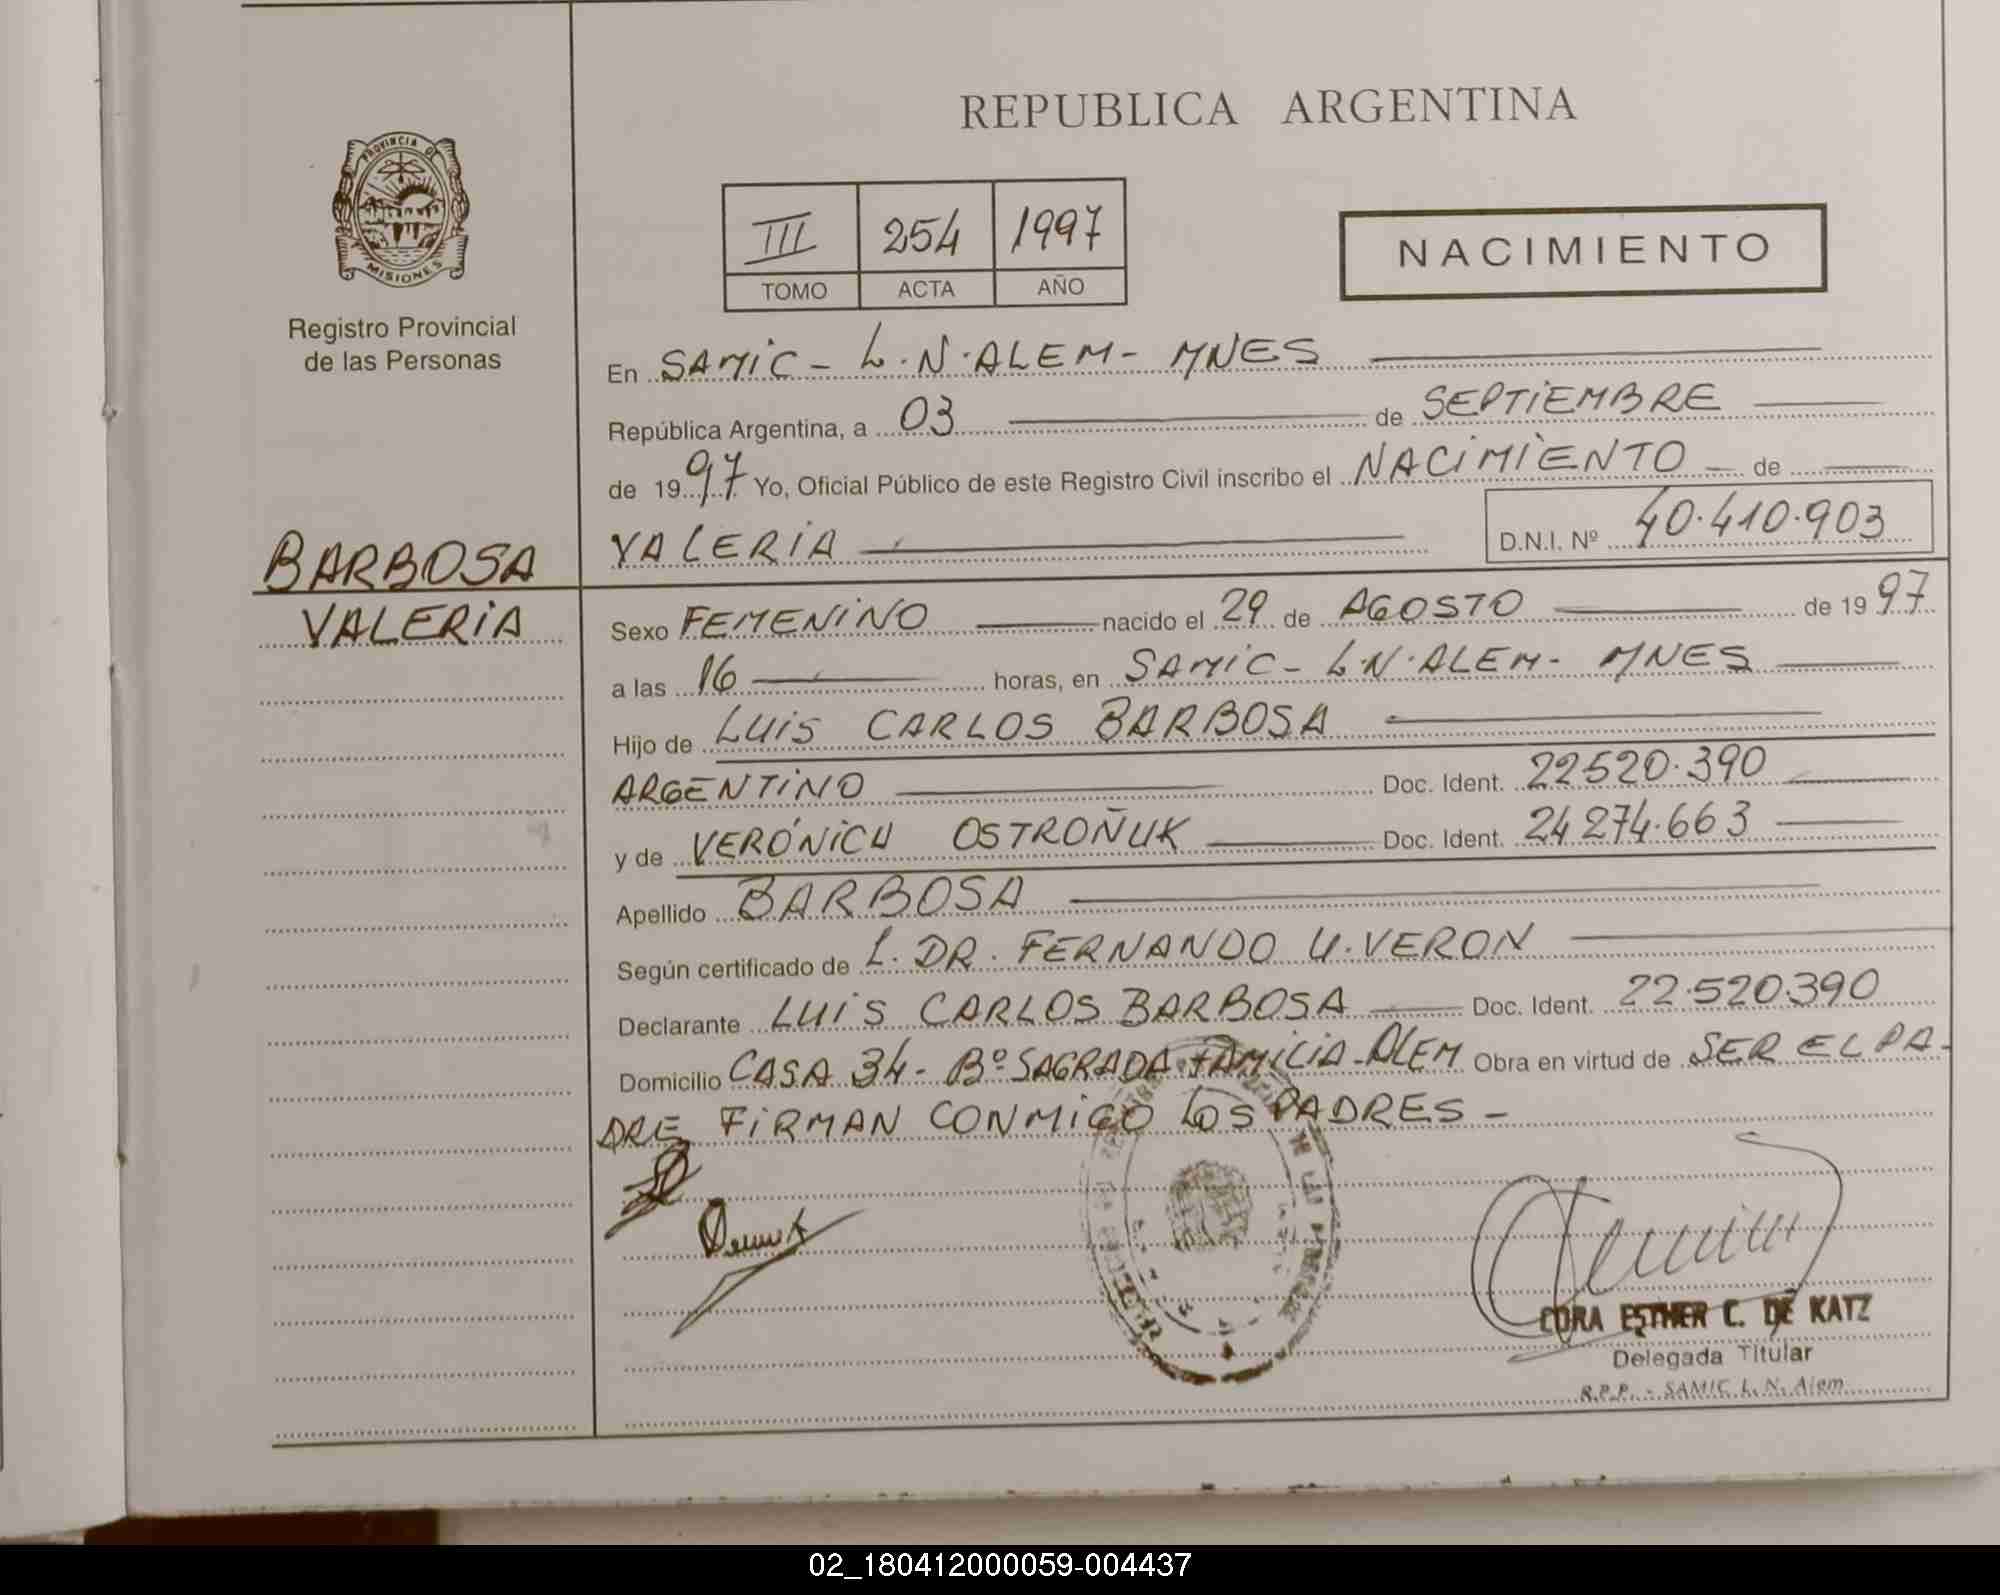 REPUBLICA ARGENTINA
PROVINCIA DE
MISIONES
Registro Provincial
de las Personas
III 254 1997
TOMO ACTA AÑO
NACIMIENTO
En SAMIC - L.N. ALEM - MNES
República Argentina, a 03 de SEPTIEMBRE
de 1997 Yo, Oficial Público de este Registro Civil inscribo el NACIMIENTO de
VALERIA
D.N.I. Nº 40.410.903
BARBOSA
VALERIA
Sexo FEMENINO nacido el 29 de AGOSTO de 1997
a las 16 horas, en SAMIC - L.N. ALEM - MNES
Hijo de LUIS CARLOS BARBOSA
ARGENTINO Doc. Ident. 22520.390
y de VERÓNICA OSTROÑUK Doc. Ident. 24274.663
Apellido BARBOSA
Según certificado de L. DR. FERNANDO U. VERON
Declarante LUIS CARLOS BARBOSA Doc. Ident. 22.520390
Domicilio CASA 34 - Bº SAGRADA FAMILIA - ALEM Obra en virtud de SER EL PA-
DRE FIRMAN CONMIGO LOS PADRES -
CORA ESTHER C. DE KATZ
Delegada Titular
R.P.P. - SAMIC L. N. Alem
02_180412000059-004437